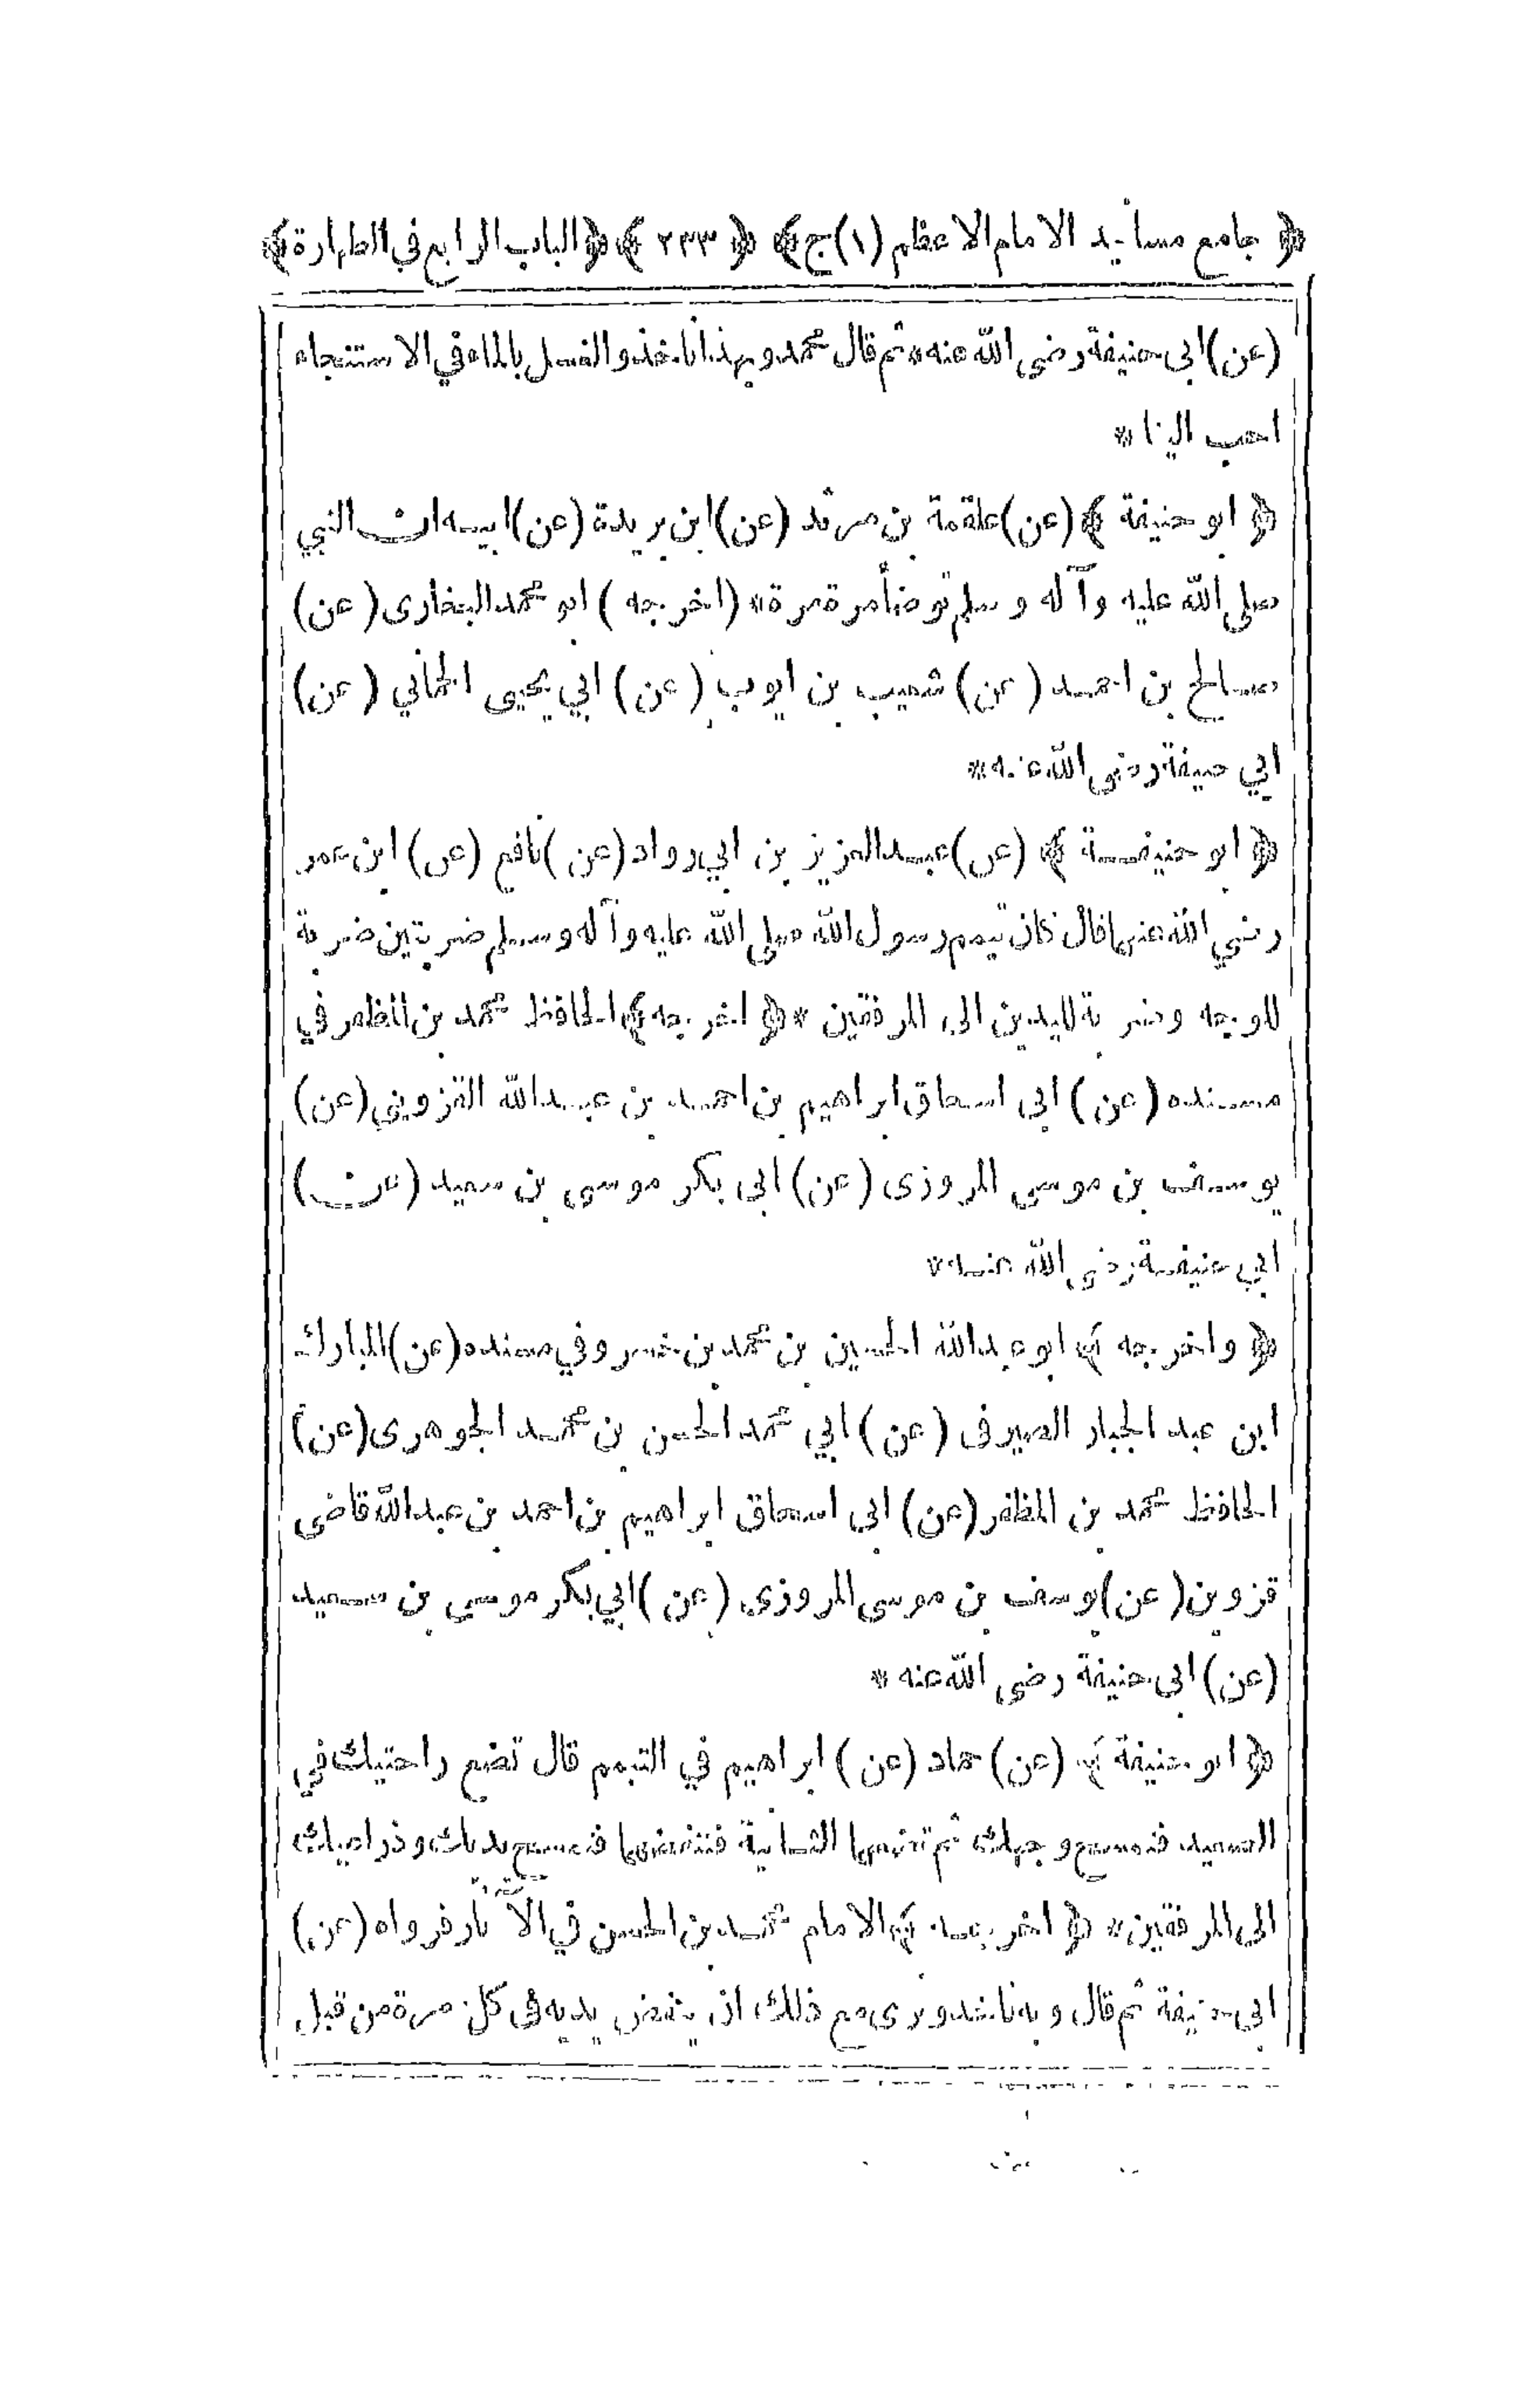 ﴿ جامع مسانيد الامام الاعظم (١) ج ﴾ ﴿ ٢٣٣ ﴾ ﴿ الباب الرابع في الطهارة ﴾
(عن) ابى حنيفة رضى الله عنه * ثم قال محمد وبهذا نأخذ والغسل بالماء في الاستنجاء
احب الينا *
﴿ ابو حنيفة ﴾ (عن) علقمة بن مرثد (عن) ابن بريدة (عن) ابيه ان النبي
صلى الله عليه وآله وسلم توضأ مرة مرة * (اخرجه) ابو محمد البخارى (عن)
صالح بن احمد (عن) شعيب بن ايوب (عن) ابي يحيى الحماني (عن)
ابي حنيفة رضى الله عنه *
﴿ ابو حنيفة ﴾ (عن) عبد العزيز بن ابي رواد (عن) نافع (عن) ابن عمر
رضي الله عنهما قال كان تيمم رسول الله صلى الله عليه وآله وسلم ضربتين ضربة
للوجه وضربة لليدين الى المرفقين * ﴿ اخرجه ﴾ الحافظ محمد بن المظفر في
مسنده (عن) ابى اسحاق ابراهيم بن احمد بن عبد الله القزويني (عن)
يوسف بن موسى المروزى (عن) ابى بكر موسى بن سعيد (عن)
ابي حنيفة رضى الله عنه *
﴿ واخرجه ﴾ ابو عبد الله الحسين بن محمد بن خسرو في مسنده (عن) المبارك
ابن عبد الجبار الصيرفى (عن) ابي محمد الحسن بن محمد الجوهرى (عن)
الحافظ محمد بن المظفر (عن) ابى اسحاق ابراهيم بن احمد بن عبد الله قاضى
قزوين (عن) يوسف بن موسى المروزى (عن) ابي بكر موسى بن سعيد
(عن) ابى حنيفة رضى الله عنه *
﴿ ابو حنيفة ﴾ (عن) حماد (عن) ابراهيم في التيمم قال تضع راحتيك في
الصعيد فتمسح وجهك ثم تضعهما الثانية فتنفضهما فتمسح يديك وذراعيك
الى المرفقين * ﴿ اخرجه ﴾ الامام محمد بن الحسن في الآثار فرواه (عن)
ابى حنيفة ثم قال وبه نأخذ ويرى مع ذلك ان ينفض يديه فى كل مرة من قبل